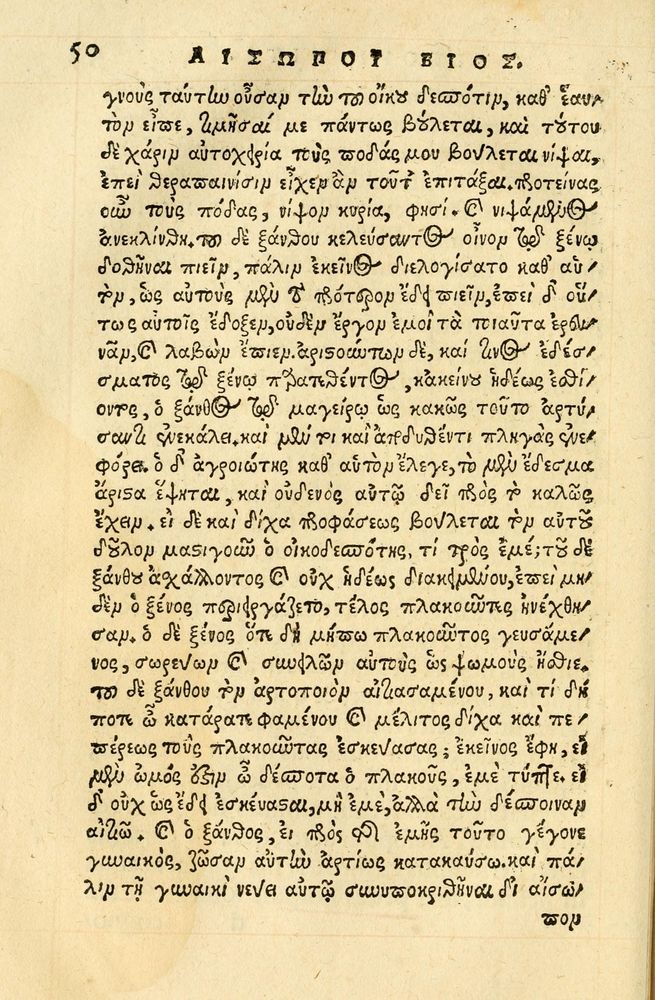 50 ΑΙΣΩΠΟΥ ΒΙΟΣ.
γνοὺς ταύτην οὖσαν τὴν τοῦ οἴκου δεσπότιν, καθ' ἑαυ-
τὸν εἶπε, τιμῆσαί με πάντως βούλεται, καὶ τούτου
δὲ χάριν αὐτοχειρία τοὺς ποδάς μου βούλεται νίψαι,
ἐπεὶ θεραπαινίσιν εἶχεν ἂν τοῦτ' ἐπιτάξαι. προτείνας
οὖν τοὺς πόδας, νίψον κυρία, φησί. καὶ νιψάμενος
ἀνεκλίνθη. τοῦ δὲ ξάνθου κελεύσαντος οἶνον τῷ ξένῳ
δοθῆναι πιεῖν, πάλιν ἐκεῖνος διελογίσατο καθ' αὑ-
τὸν, ὡς αὐτοὺς μὲν τὸ πρότερον ἔδει πιεῖν, ἐπεὶ δ' οὕ-
τως αὐτοῖς ἔδοξεν, οὐδὲν ἔργον ἐμοὶ τὰ τοιαῦτα ἐρευ-
νᾶν, καὶ λαβὼν ἔπιεν. ἀριστώντων δὲ, καί τινος ἐδέ-
σματος τῷ ξένῳ παρατιθέντος, κακείνου ἡδέως ἐσθί-
οντος, ὁ ξάνθος τῷ μαγείρῳ ὡς κακῶς τοῦτο ἀρτύ-
σαντι ἐνεκάλει. καὶ μέντοι καὶ ἀποδυθέντι πληγὰς ἐνε-
φόρει. ὁ δ' ἀγροιώτης καθ' αὑτὸν ἔλεγε, τὸ μὲν ἔδεσμα
ἄριστα ἕψηται, καὶ οὐδενὸς αὐτῷ δεῖ πρὸς τὸ καλῶς
ἔχειν. εἰ δὲ καὶ δίχα προφάσεως βούλεται τὸν αὑτοῦ
δοῦλον μαστιγοῦν ὁ οἰκοδεσπότης, τί πρὸς ἐμέ; τοῦ δὲ
ξάνθου ἀχάλλοντος καὶ οὐχ ἡδέως διακειμένου, ἐπεὶ μη-
δὲν ὁ ξένος περιειργάζετο, τέλος πλακοῦντες ἠνέχθη-
σαν. ὁ δὲ ξένος ὅτι δὴ μήπω πλακοῦντος γευσάμε-
νος, σωρεύων καὶ συνειλῶν αὐτοὺς ὡς ψωμοὺς ἤσθιε.
τοῦ δὲ ξάνθου τὸν ἀρτοποιὸν αἰτιασαμένου, καὶ τί δή
ποτε ὦ κατάρατε φαμένου καὶ μέλιτος δίχα καὶ πε-
πέρεως τοὺς πλακοῦντας ἐσκεύασας; ἐκεῖνος ἔφη, εἰ
μὲν ὠμός ἐστιν ὦ δέσποτα ὁ πλακοῦς, ἐμὲ τύπτε. εἰ
δ' οὐχ ὡς ἔδει ἐσκεύασται, μὴ ἐμὲ, ἀλλὰ τὴν δέσποιναν
αἰτιῶ. καὶ ὁ ξάνθος, εἰ πρὸς τῆς ἐμῆς τοῦτο γέγονε
γυναικὸς, ζῶσαν αὐτὴν ἀρτίως κατακαύσω. καὶ πά-
λιν τῇ γυναικὶ νεύει αὐτῷ συνυποκριθῆναι δι' αἴσω-
πον